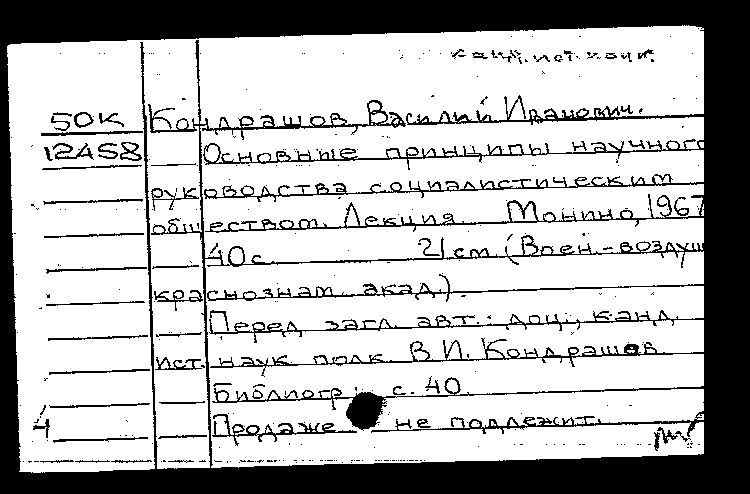 канд. ист. наук.
50К Кондрашов, Василий Иванович.
12458 Основные принципы научного
руководства социалистическим
обществом. Лекция. Монино, 1967
40 с. 21 см. (Воен.-воздуш
краснознам. акад.).
Перед загл. авт.: доц., канд.
ист. наук полк. В.И. Кондрашов.
Библиогр.: с. 40
4 Продаже не подлежит.